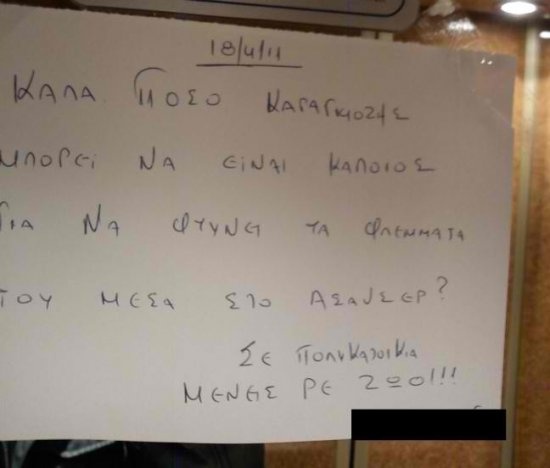 18/4/11
ΚΑΛΑ ΠΟΣΟ ΚΑΡΑΓΚΙΟΖΗΣ
ΜΠΟΡΕΙ ΝΑ ΕΙΝΑΙ ΚΑΠΟΙΟΣ
ΓΙΑ ΝΑ ΦΤΥΝΕΙ ΤΑ ΦΛΕΜΜΑΤΑ
ΤΟΥ ΜΕΣΑ ΣΤΟ ΑΣΑΝΣΕΡ?
ΣΕ ΠΟΛΥΚΑΤΟΙΚΙΑ
ΜΕΝΕΙΣ ΡΕ ΖΩΟ!!!